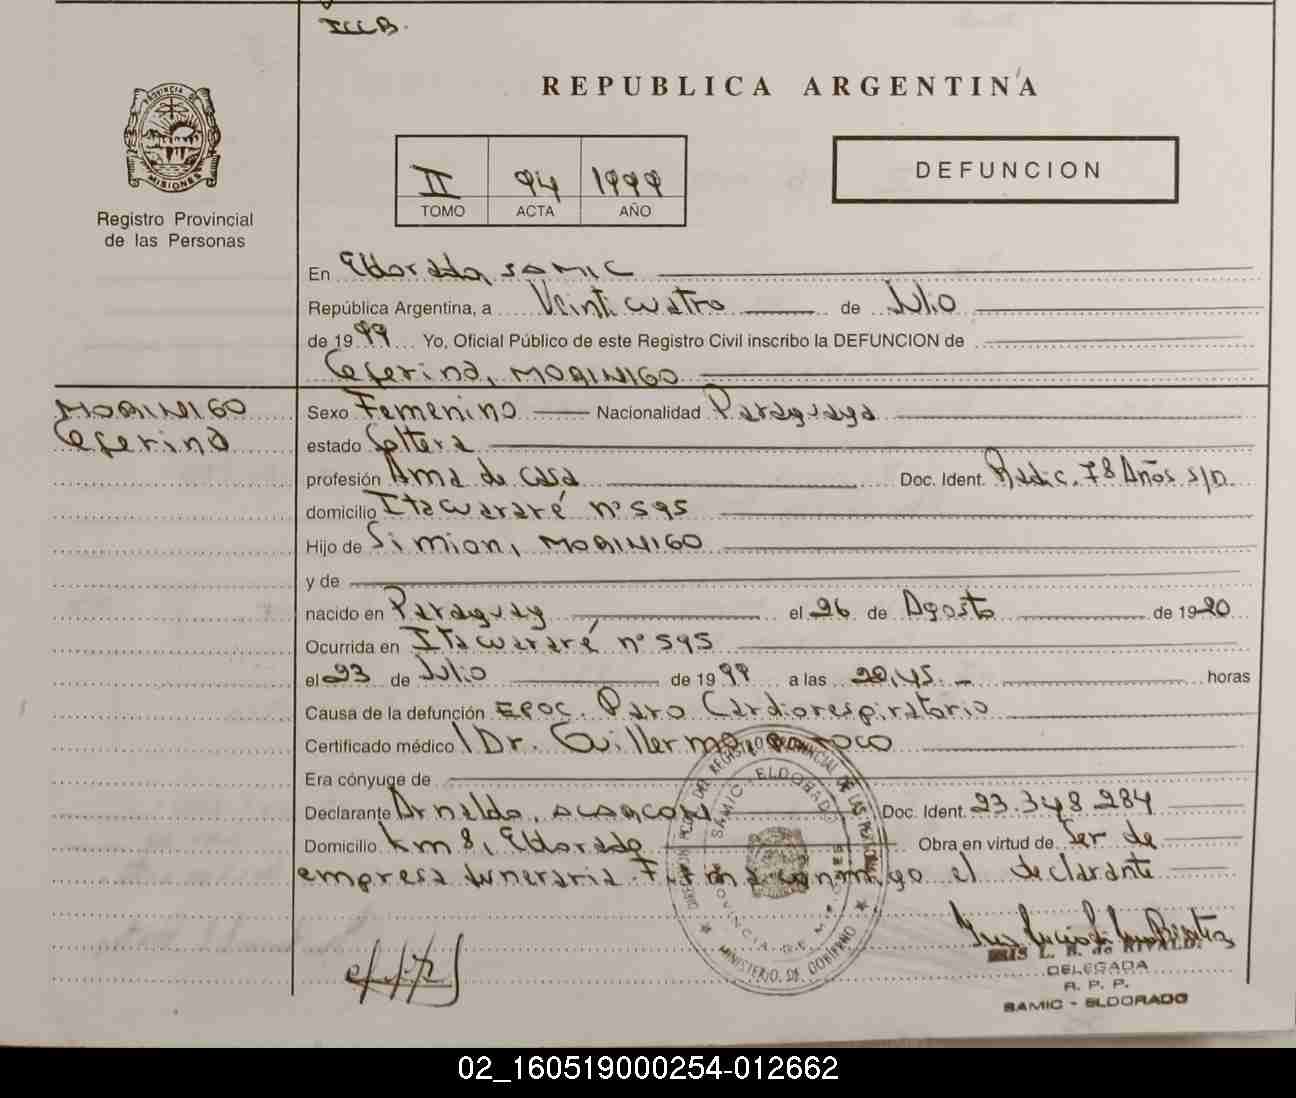 ILLB.
REPUBLICA ARGENTINA
PROVINCIA DE
MISIONES
Registro Provincial
de las Personas
II 94 1999
TOMO ACTA AÑO
DEFUNCION
En Eldorado, SAMIC
República Argentina, a Veinticuatro de Julio
de 1999 Yo, Oficial Público de este Registro Civil inscribo la DEFUNCION de
Ceferina, MORINIGO
MORINIGO
Ceferina
Sexo Femenino Nacionalidad Paraguaya
estado Soltera
profesión Ama de casa Doc. Ident. Radic. 78 Años s/D.
domicilio Itacuararé nº 595
Hijo de Simion, MORINIGO
y de
nacido en Paraguay el 26 de Agosto de 1920
Ocurrida en Itacuararé nº 595
el 23 de Julio de 1999 a las 20,45.- horas
Causa de la defunción EPOC. Paro Cardiorespiratorio
Certificado médico Dr. Guillermo, OROZCO
Era cónyuge de
Declarante Arnaldo, ALARCON Doc. Ident. 23.348.284
Domicilio Km 8, Eldorado Obra en virtud de Ser de
empresa funeraria. Firma conmigo el declarante
DEL REGISTRO PROVINCIAL DE LAS PERSONAS
SAMIC - ELDORADO
PROVINCIA DE MISIONES
MINISTERIO DE GOBIERNO
IRIS L. B. de RIVALD.
DELEGADA
R. P. P.
SAMIC - ELDORADO
02_160519000254-012662